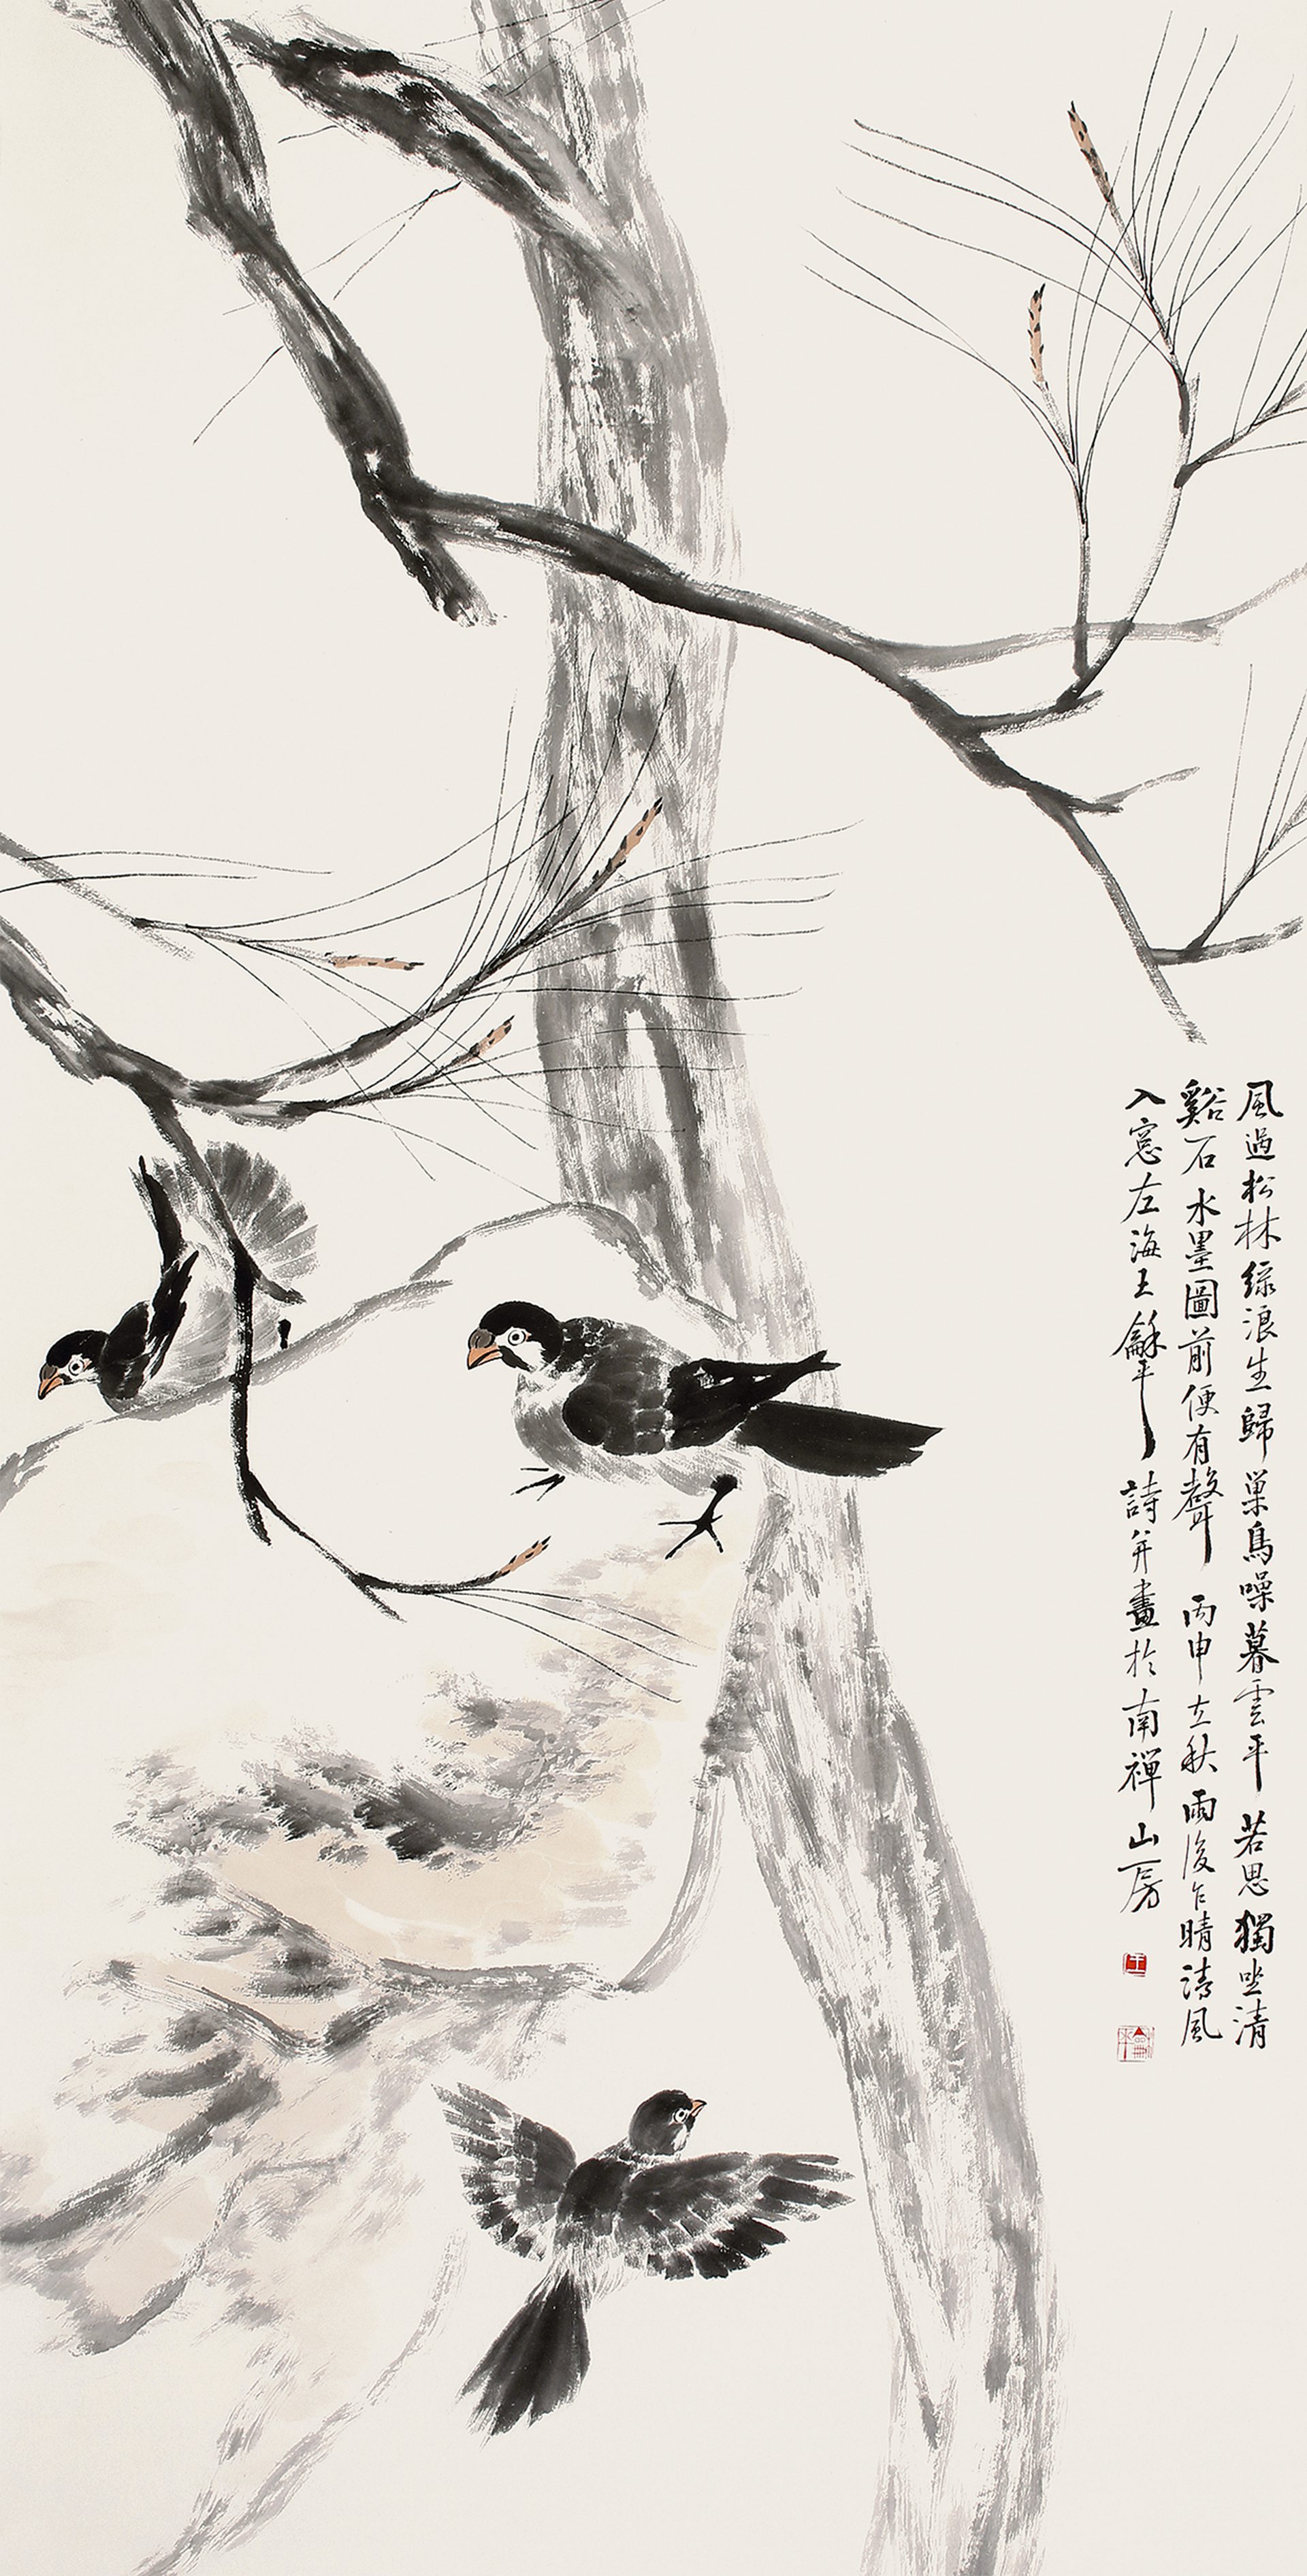 風過松林綠浪生歸巢鳥噪暮雲平若思獨坐清
谿石水墨圖前便有聲丙申立秋雨後乍晴清風
入窓左海王龢平詩并畫於南禪山房
王